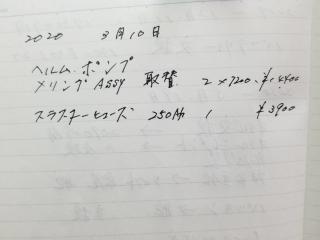 2020 3月10日
ヘルム・ポンプ
メリングASSY 取替 2×7200 ¥14400
スラスターヒューズ 250A 1 ¥3900